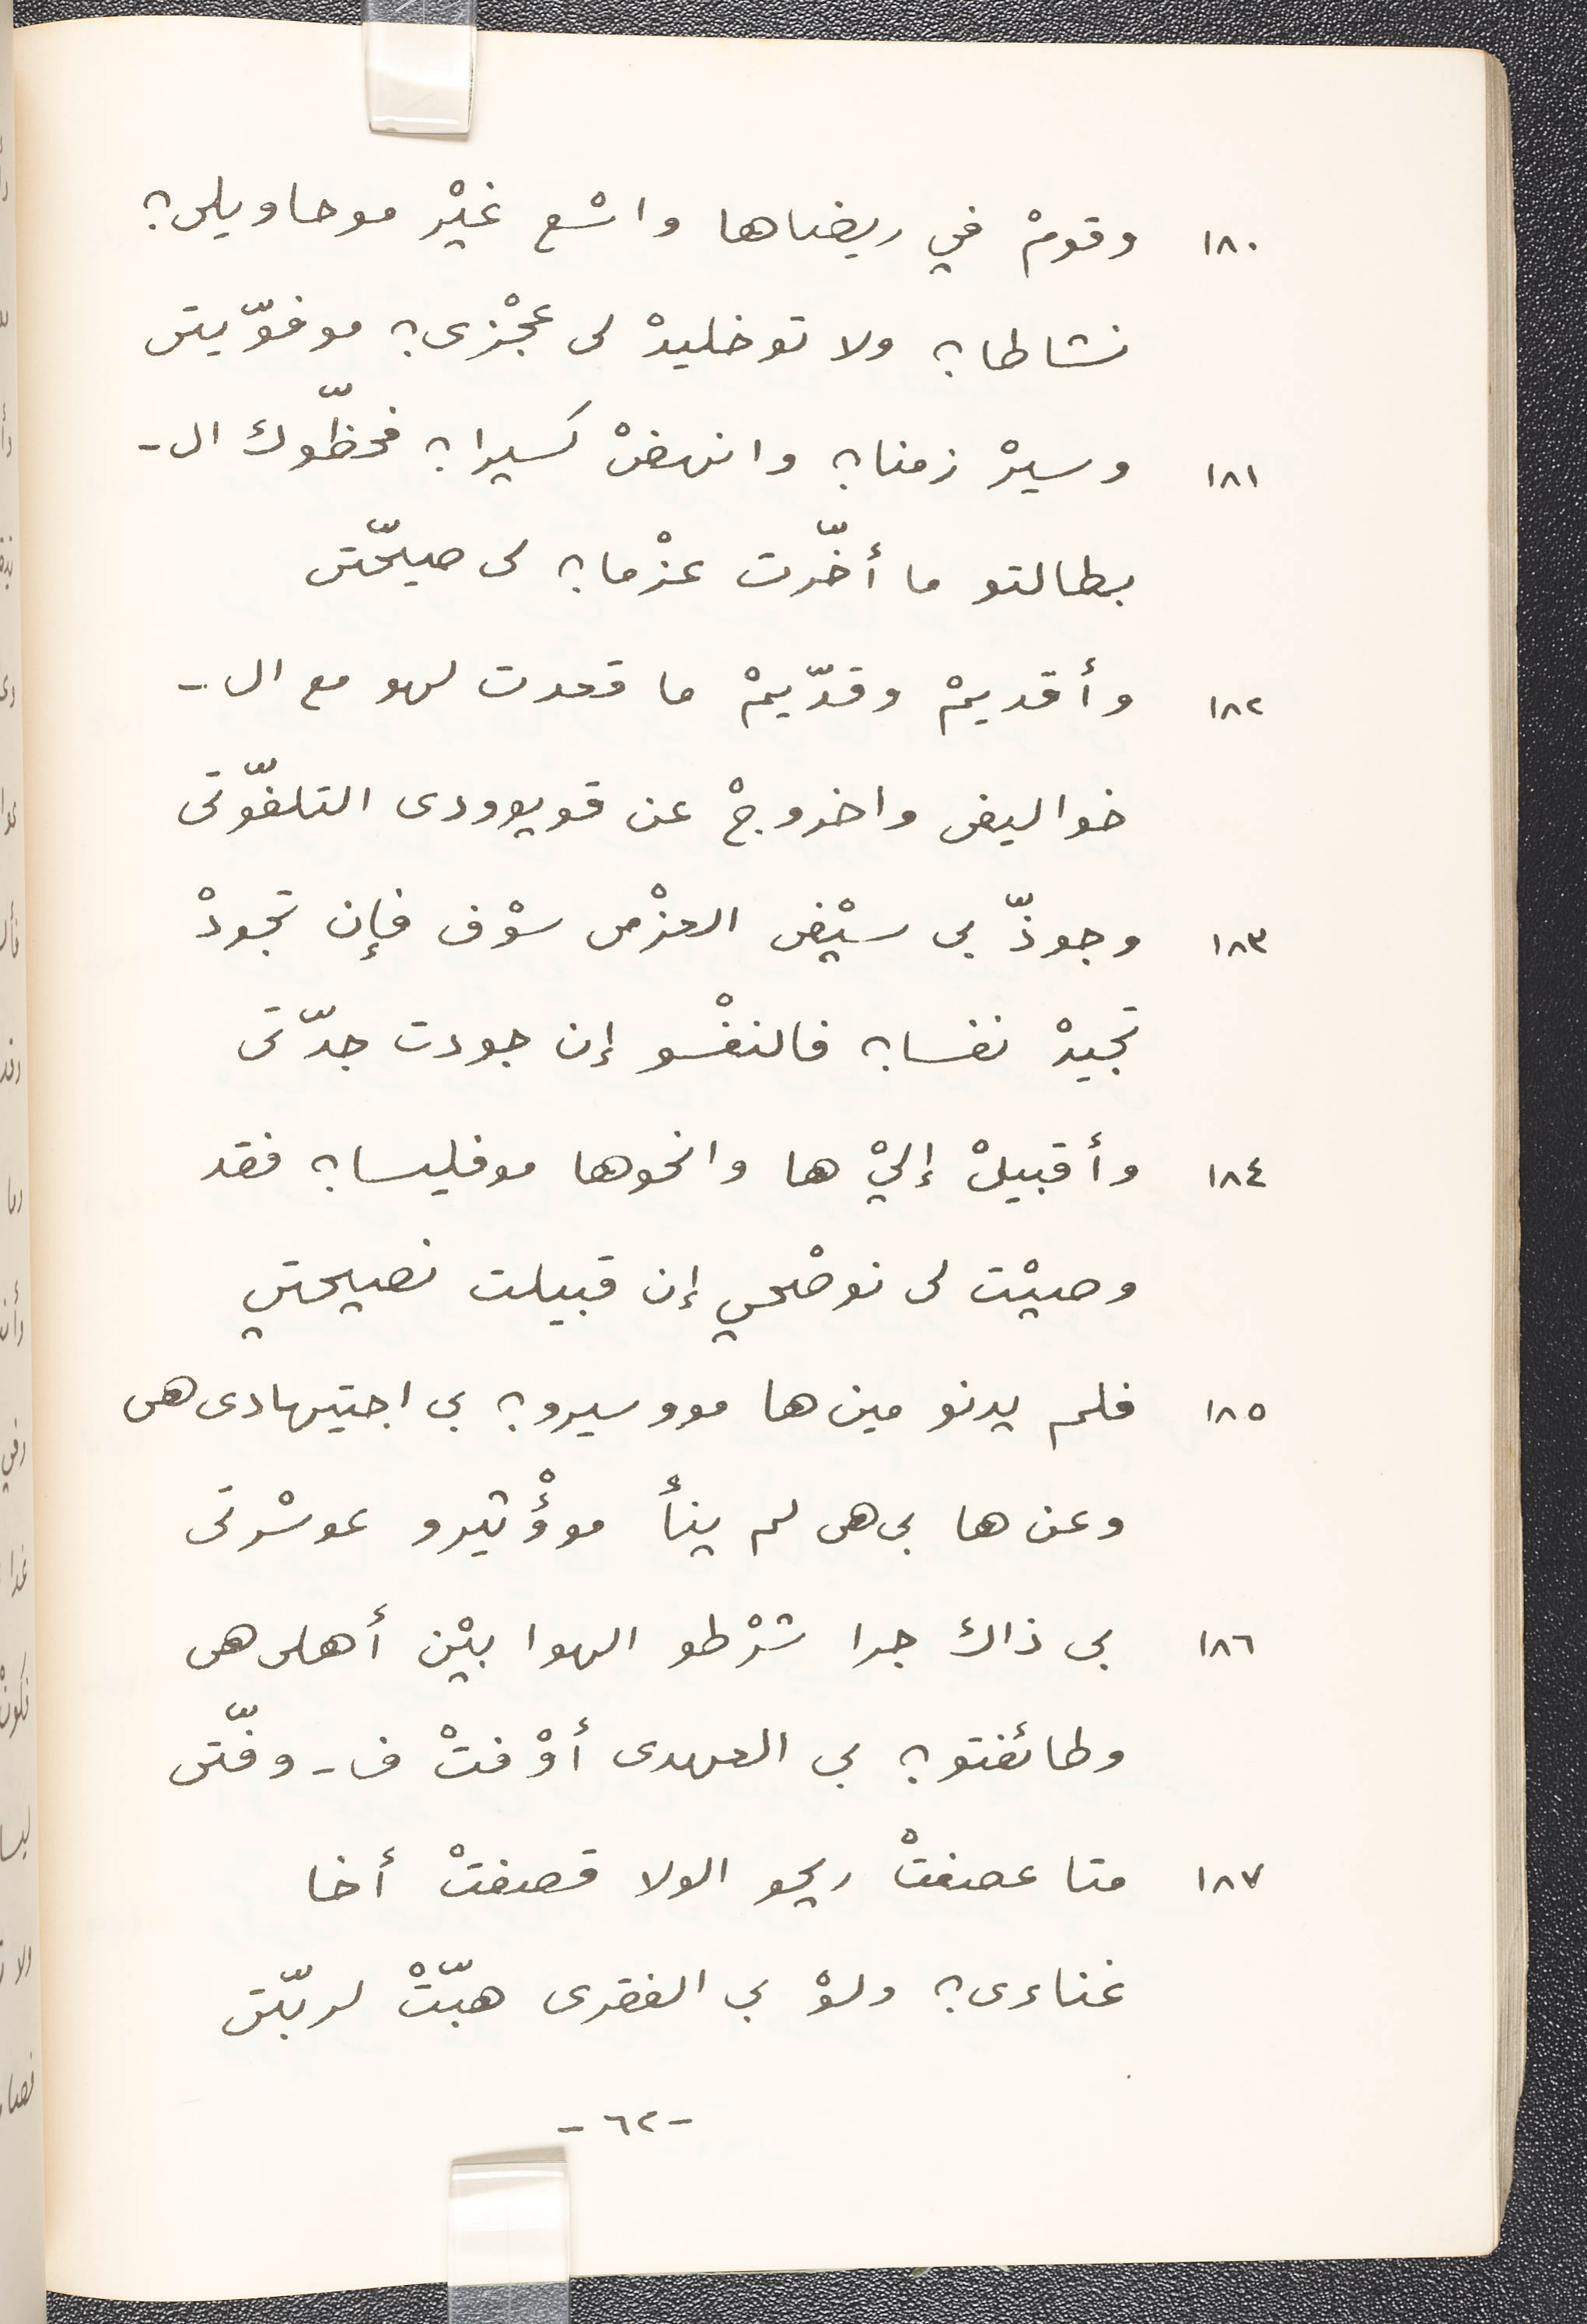 ١٨٠ وقومْ في ريضاها واسْع غيْر موحاويلى؟
نشاطا؟ ولا توخليدْ لى عجْزى؟ موفوّيتى
١٨١ وسيرْ زمنا؟ وانهضْ كسيرا؟ فحظّوك ال-
بطالتو ما أخّرت عزْما؟ لى صيحّتى
١٨٢ وأقديمْ وقدّيمْ ما قعدت لهو مع ال-
خواليفى واخروجْ عن قويوودى التلفّوتى
١٨٣ وجوذّ بى سيْفى العزْمى سوْف فإن تجودْ
تجيدْ نفسا؟ فالنفْسو إن جودت جدّتى
١٨٤ وأقبيلْ إليْ ها وانحوها موفليسا؟ فقد
وصيْت لى نوصْحي إن قبيلت نصيحتي
١٨٥ فلم يدنو مين ها مووسيرو؟ بى اجتيهادى هى
وعن ها بى هى لم ينأ موؤْثيرو عوسْرتى
١٨٦ بى ذاك جرا شرْطو الهوا بيْن أهلى هى
وطائفتو؟ بى العهدى أوْفتْ ف-وفّتى
١٨٧ متا عصفتْ ريحو الولا قصفتْ أخا
غناءى؟ ولوْ بى الفقرى هبّتْ لربّتى
-٦٢-